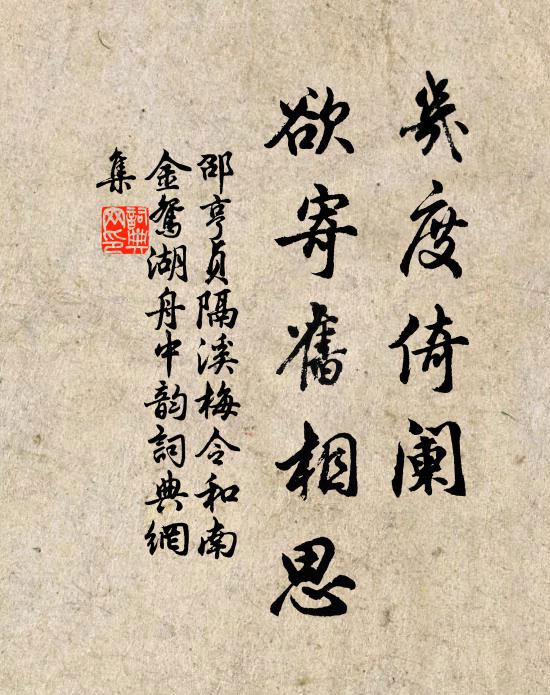 幾度倚闌
欲寄舊相思
邵亨貞隔溪梅令和南
金鴛湖舟中韵詞典網
集
詞典網印